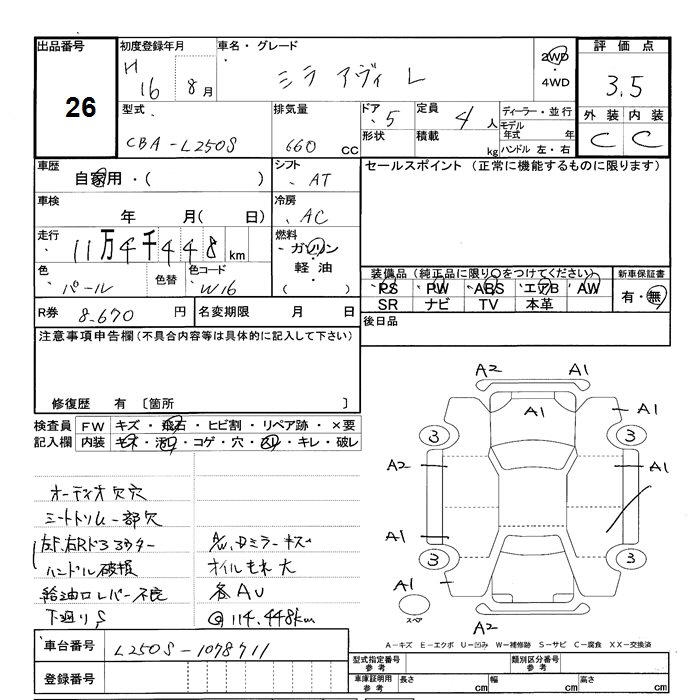 出品番号 初度登録年月 車名・グレード 2WD ・ 4WD 評価点
26 H 16 8月 ミラ アヴィ L 3.5
型式 排気量 ドア・5 定員 4人 ディーラー・並行 外装 内装
CBA-L250S 660 CC 形状 積載 kg モデル年式 年 C C
ハンドル 左・右
車歴 シフト セールスポイント (正常に機能するものに限ります)
自家用・( ) AT
車検 冷房
年 月( 日) AC
走行 燃料
11万4千448km ガソリン・
軽油
色 色替 色コード 装備品(純正品に限り○をつけてください) 新車保証書
パール W16 PS PW ABS エアB AW 有・無
SR ナビ TV 本革
R券 8,670円 名変期限 月 日 後日品
注意事項申告欄(不具合内容等は具体的に記入して下さい)
修復歴 有 〔箇所 〕
検査員 FW キズ・飛石・ヒビ割・リペア跡・×要
記入欄 内装 キズ・汚れ・コゲ・穴・スリ・キレ・破レ
オーディオ欠穴
シートトリム一部欠
左F、右Rドア
ハンドル破損
給油口レバー不良
下廻りS
A/W、Dミラーキズ
オイルもれ大
各AU
@114,448km
A2 A1
A1 A1
3 3
A2 A1
A1
3 3
A1
スペア
A2
A-キズ E-エクボ U-凹み W-補修跡 S-サビ C-腐食 XX-交換済
車台番号 L250S-1078711
登録番号
型式指定番号 参考 類別区分番号 参考
車庫証明用 参考 長さ cm 幅 cm 高さ cm